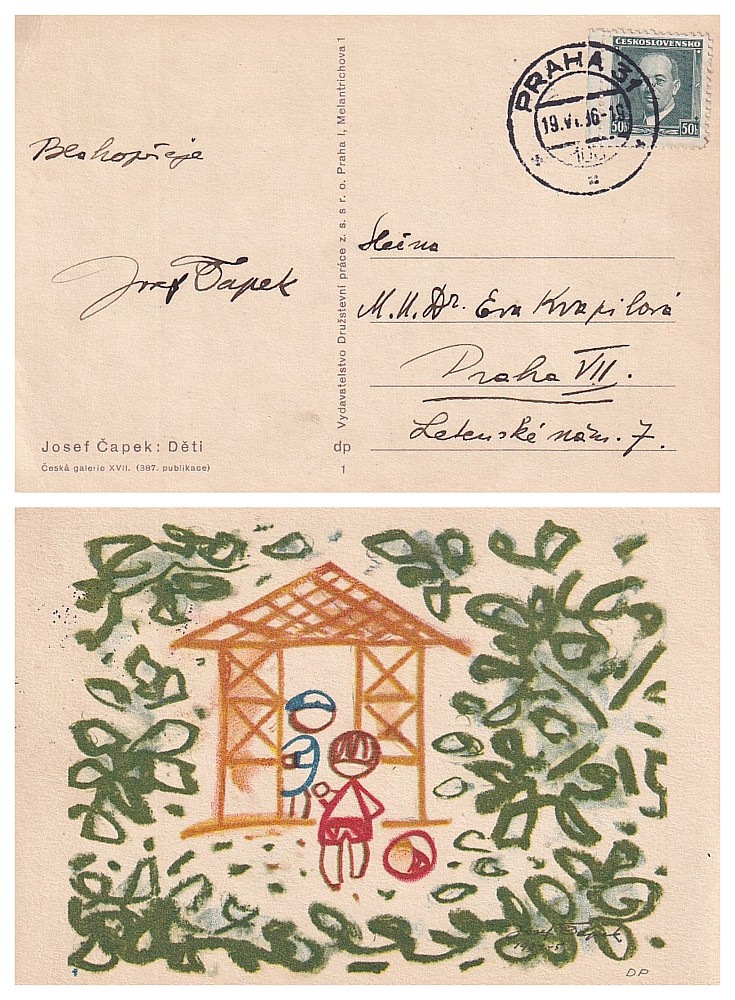 ČESKOSLOVENSKO
50h 50h
PRAHA 31
19.VI.36-16
Blahopřeje
Josef Čapek
Slečna
M.U.Dr. Eva Kvapilová
Praha VII.
Letenské nám. 7.
Vydavatelstvo Družstevní práce z. s. s r. o. Praha I, Melantrichova 1
Josef Čapek: Děti
Česká galerie XVII. (387. publikace)
dp
1
Josef Čapek
DP